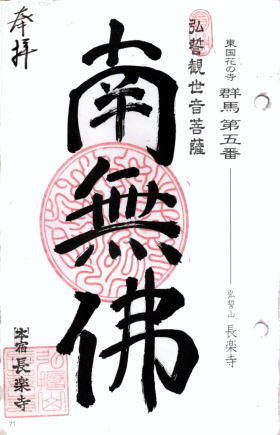 東国花の寺 群馬 第五番
弘誓山 長楽寺
弘誓観世音菩薩
南無佛
奉拝
本宿 長楽寺
71